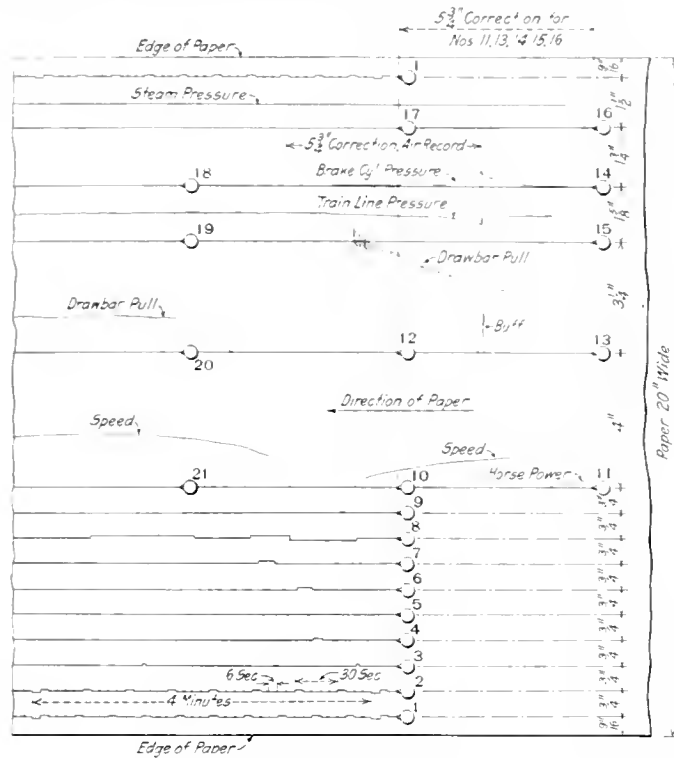 5 3/4" Correction for
Nos 11, 13, 14 15, 16
Edge of Paper
1
Steam Pressure
17
16
5 3/4" Correction, Air Record
18
Brake Cyl Pressure
14
Train Line Pressure
19
15
Drawbar Pull
3 1/4"
Drawbar Pull
Buff
12
13
20
Direction of Paper
4"
Paper 20" Wide
Speed
Speed
21
10
Horse Power
11
9
8
7
6
5
4
3
6 Sec
30 Sec
2
4 Minutes
1
Edge of Paper